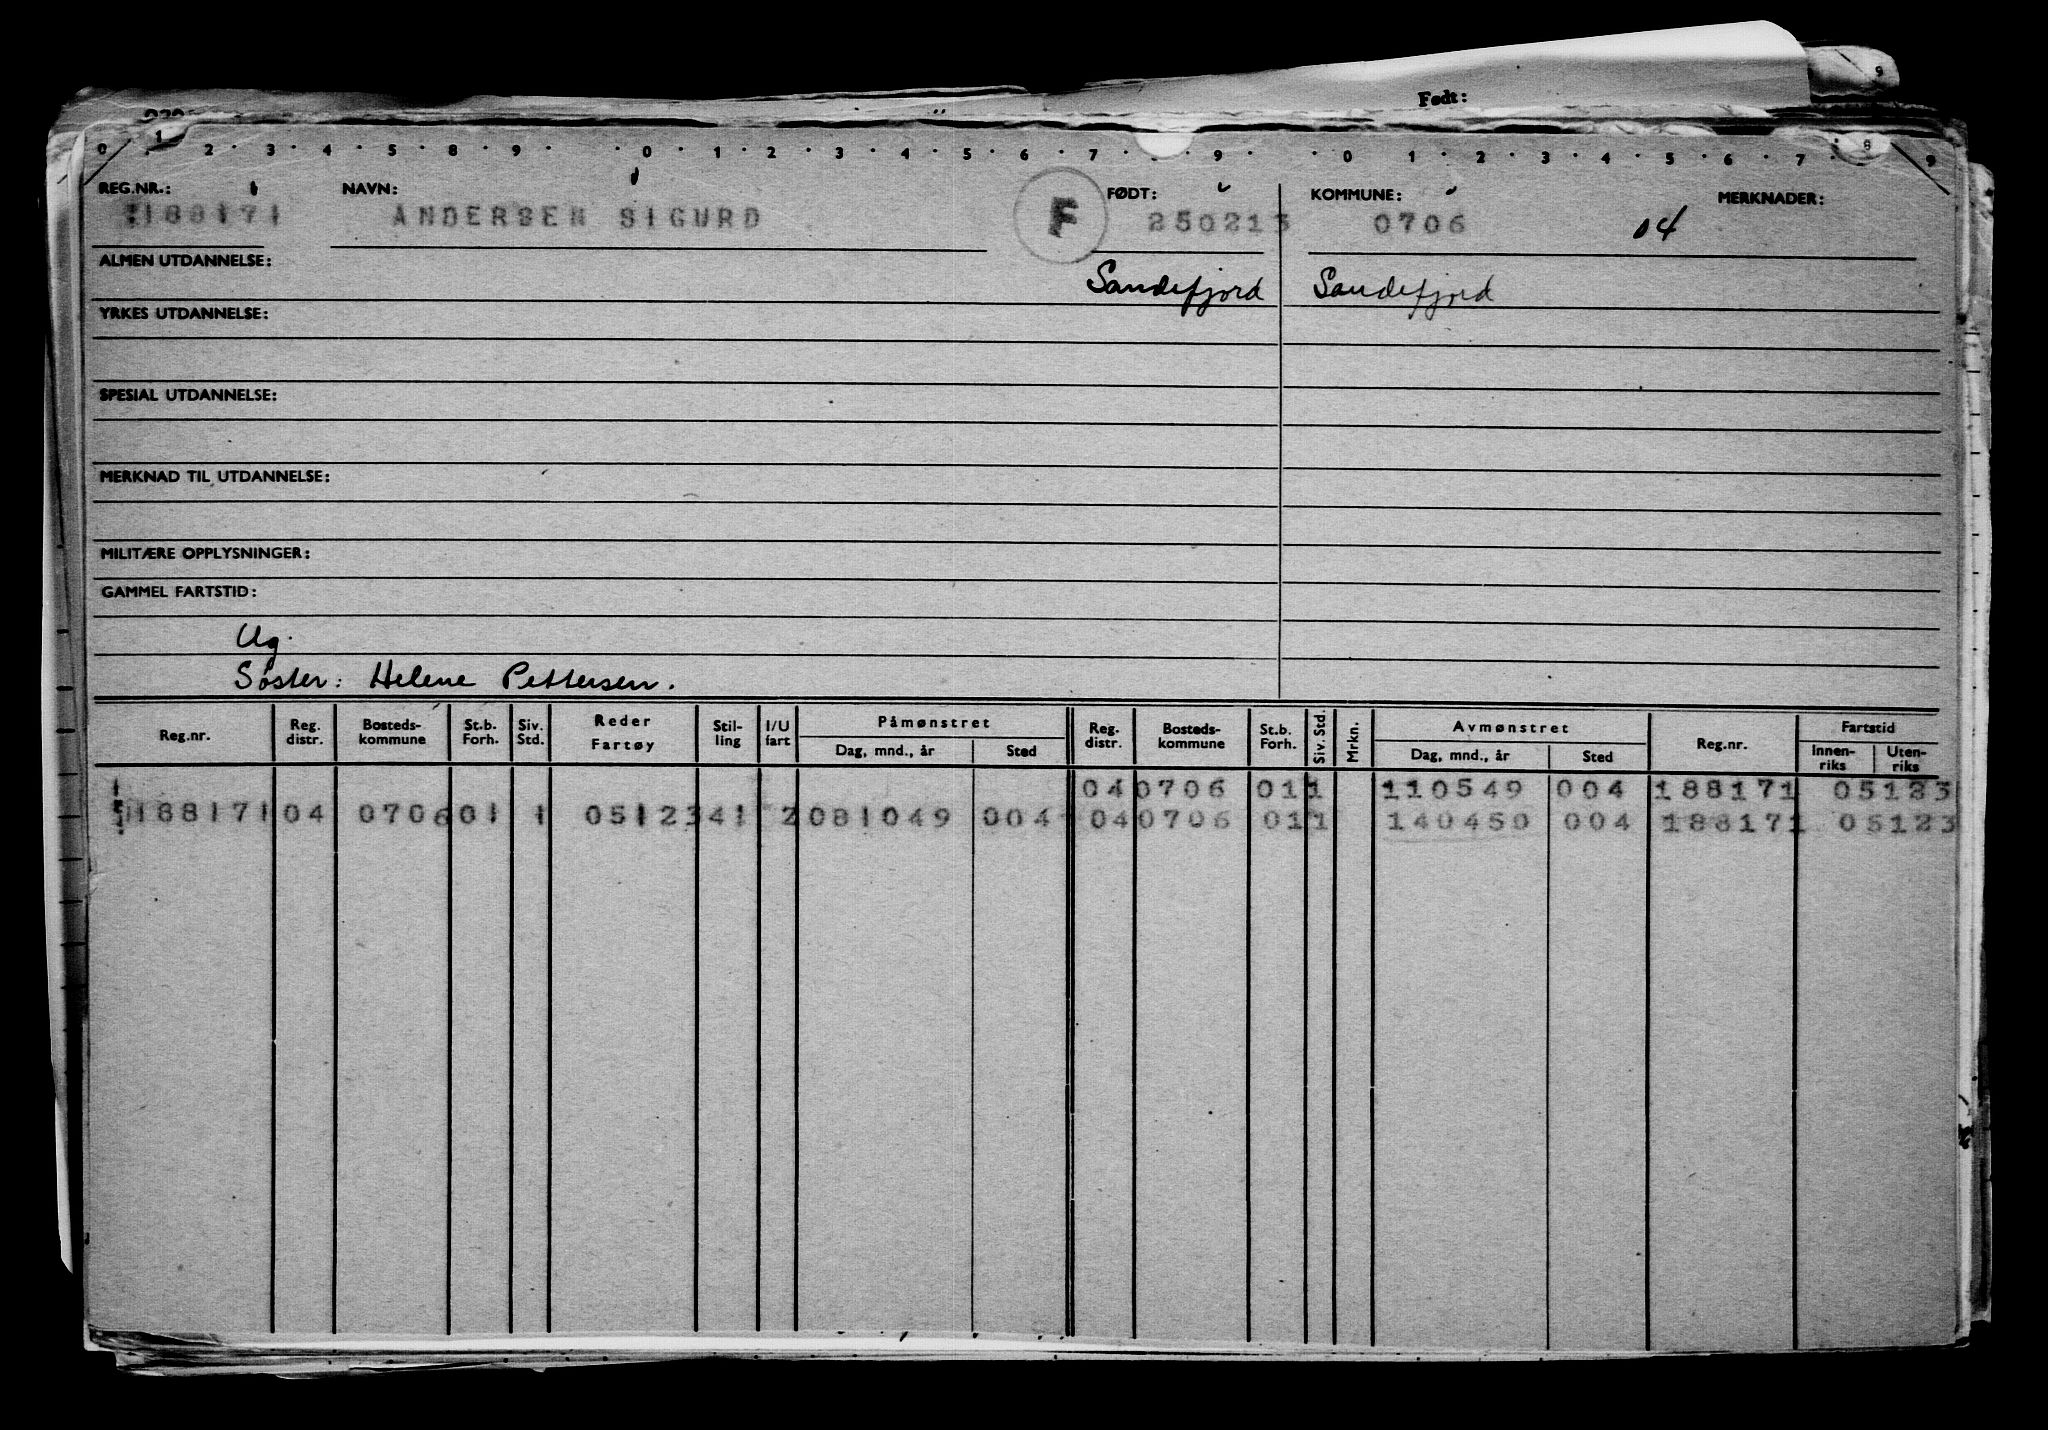 Født:
9
0 1 2 3 4 5 8 9 0 1 2 3 4 5 6 7 9 0 1 2 3 4 5 6 7 8 9
REG.NR.: NAVN: FØDT: KOMMUNE: MERKNADER:
188171 ANDERSEN SIGURD F 250213 0706 04
ALMEN UTDANNELSE:
Sandefjord Sandefjord
YRKES UTDANNELSE:
SPESIAL UTDANNELSE:
MERKNAD TIL UTDANNELSE:
MILITÆRE OPPLYSNINGER:
GAMMEL FARTSTID:
Ug.
Søster: Helene Pettersen.
Reg.nr. Reg. distr. Bosteds-kommune St.b. Forh. Siv. Std. Reder Fartøy Stil-ling I/U fart Påmønstret Dag, mnd., år Sted Reg. distr. Bosteds-kommune St.b. Forh. Siv. Std. Mrkn. Avmønstret Dag, mnd., år Sted Reg.nr. Fartstid Innen-riks Uten-riks
04 0706 01 1 110549 004 188171 05123
188171 04 0706 01 1 05123 41 2 081049 004 04 0706 01 1 140450 004 188171 05123